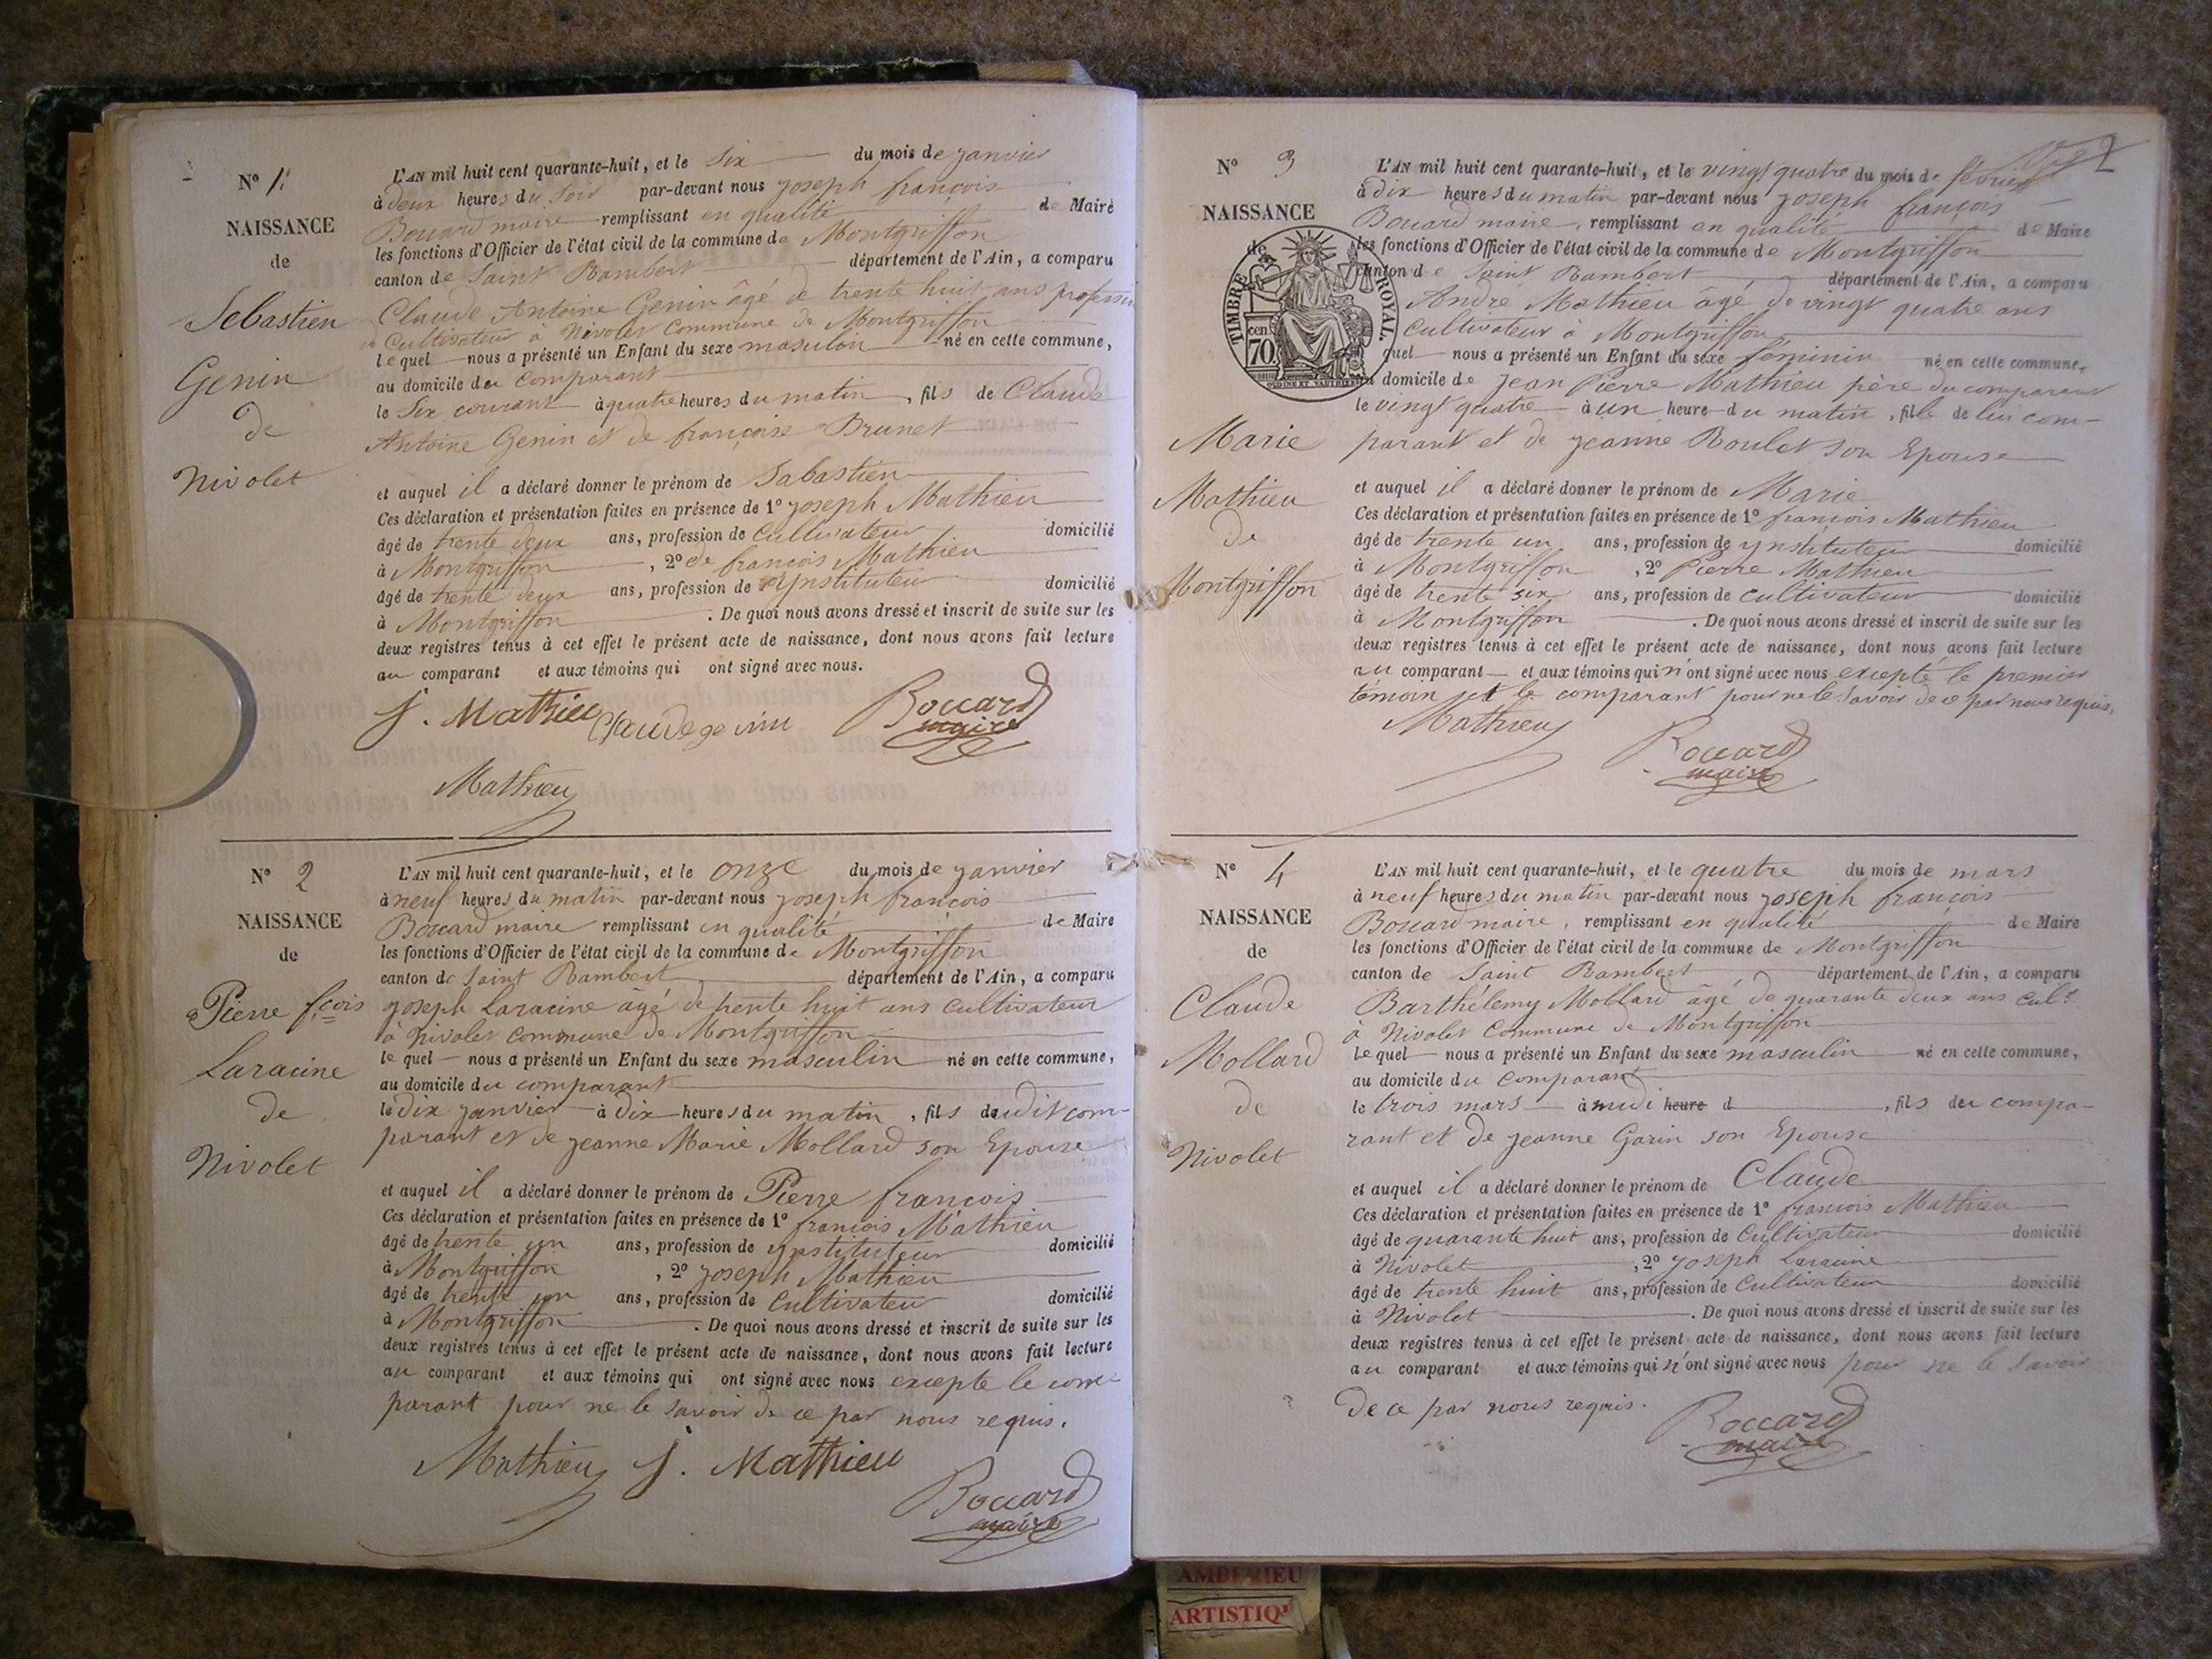 N° 1.
NAISSANCE
de
Sebastien
Genin
de
Nivolet
L'AN mil huit cent quarante-huit, et le Six du mois de janvier
à deux heures du Soir par-devant nous joseph françois
Bouard maire remplissant en qualité de Maire
les fonctions d'Officier de l'état civil de la commune de Montgriffon
canton de Saint Rambert département de l'Ain, a comparu
Claude Antoine Genin âgé de trente huit ans profession
de Cultivateur à Nivolet Commune de Montgriffon
lequel nous a présenté un Enfant du sexe masculin né en cette commune,
au domicile du Comparant
le Six courant à quatre heures du matin, fils de Claude
Antoine Genin et de françoise Brunet
et auquel il a déclaré donner le prénom de Sabastien
Ces déclaration et présentation faites en présence de 1° joseph Mathieu
âgé de trente deux ans, profession de Cultivateur domicilié
à Montgriffon, 2° de françois Mathieu
âgé de trente deux ans, profession de ynstituteur domicilié
à Montgriffon. De quoi nous avons dressé et inscrit de suite sur les
deux registres tenus à cet effet le présent acte de naissance, dont nous avons fait lecture
au comparant et aux témoins qui ont signé avec nous.
j. Mathieu Claude genin Bouard
maire
Mathieu
N° 2
NAISSANCE
de
Pierre fçois
Laracine
de
Nivolet
L'AN mil huit cent quarante-huit, et le onze du mois de janvier
à neuf heures du matin par-devant nous joseph françois
Bouard maire remplissant en qualité de Maire
les fonctions d'Officier de l'état civil de la commune de Montgriffon
canton de Saint Rambert département de l'Ain, a comparu
joseph Laracine âgé de trente huit ans cultivateur
à Nivolet commune de Montgriffon
lequel nous a présenté un Enfant du sexe masculin né en cette commune,
au domicile du comparant
le dix janvier à dix heures du matin, fils dudit com-
parant et de jeanne Marie Mollard son Epouse
et auquel il a déclaré donner le prénom de Pierre françois
Ces déclaration et présentation faites en présence de 1° françois Mathieu
âgé de trente un ans, profession de ynstituteur domicilié
à Montgriffon, 2° joseph Mathieu
âgé de trente un ans, profession de Cultivateur domicilié
à Montgriffon. De quoi nous avons dressé et inscrit de suite sur les
deux registres tenus à cet effet le présent acte de naissance, dont nous avons fait lecture
au comparant et aux témoins qui ont signé avec nous excepte le com-
parant pour ne le savoir de ce par nous requis.
Mathieu j. Mathieu
Bouard
maire
2
N° 3
NAISSANCE
de
TIMBRE ROYAL.
cen 70
Marie
Mathieu
de
Montgriffon
L'AN mil huit cent quarante-huit, et le vingt quatre du mois de février
à dix heures du matin par-devant nous joseph françois
Bouard maire, remplissant en qualité de Maire
les fonctions d'Officier de l'état civil de la commune de Montgriffon
canton de Saint Rambert département de l'Ain, a comparu
André Mathieu âgé de vingt quatre ans
Cultivateur à Montgriffon
quel nous a présenté un Enfant du sexe féminin né en cette commune,
au domicile de jean Pierre Mathieu père du comparant
le vingt quatre à un heure du matin, fille de lui com-
parant et de jeanne Boulet son Epouse
et auquel il a déclaré donner le prénom de Marie
Ces déclaration et présentation faites en présence de 1° françois Mathieu
âgé de trente un ans, profession de ynstituteur domicilié
à Montgriffon, 2° Pierre Mathieu
âgé de trente six ans, profession de cultivateur domicilié
à Montgriffon. De quoi nous avons dressé et inscrit de suite sur les
deux registres tenus à cet effet le présent acte de naissance, dont nous avons fait lecture
au comparant et aux témoins qui n'ont signé avec nous excepté le premier
témoin et le comparant pour ne le savoir de ce par nous requis.
Mathieu
Bouard
maire
N° 4
NAISSANCE
de
Claude
Mollard
de
Nivolet
L'AN mil huit cent quarante-huit, et le quatre du mois de mars
à neuf heures du matin par-devant nous joseph françois
Bouard maire, remplissant en qualité de Maire
les fonctions d'Officier de l'état civil de la commune de Montgriffon
canton de Saint Rambert département de l'Ain, a comparu
Barthélemy Mollard âgé de quarante deux ans culr
à Nivolet Commune de Montgriffon
lequel nous a présenté un Enfant du sexe masculin né en cette commune,
au domicile du Comparant
le trois mars à midi heure d, fils du compa-
rant et de jeanne Garin son Epouse
et auquel il a déclaré donner le prénom de Claude
Ces déclaration et présentation faites en présence de 1° françois Mathieu
âgé de quarante huit ans, profession de Cultivateur domicilié
à Nivolet, 2° joseph Laracine
âgé de trente huit ans, profession de Cultivateur domicilié
à Nivolet. De quoi nous avons dressé et inscrit de suite sur les
deux registres tenus à cet effet le présent acte de naissance, dont nous avons fait lecture
au comparant et aux témoins qui n'ont signé avec nous pour ne le Savoir
de ce par nous requis.
Bouard
maire
AMBERIEU
ARTISTIQ